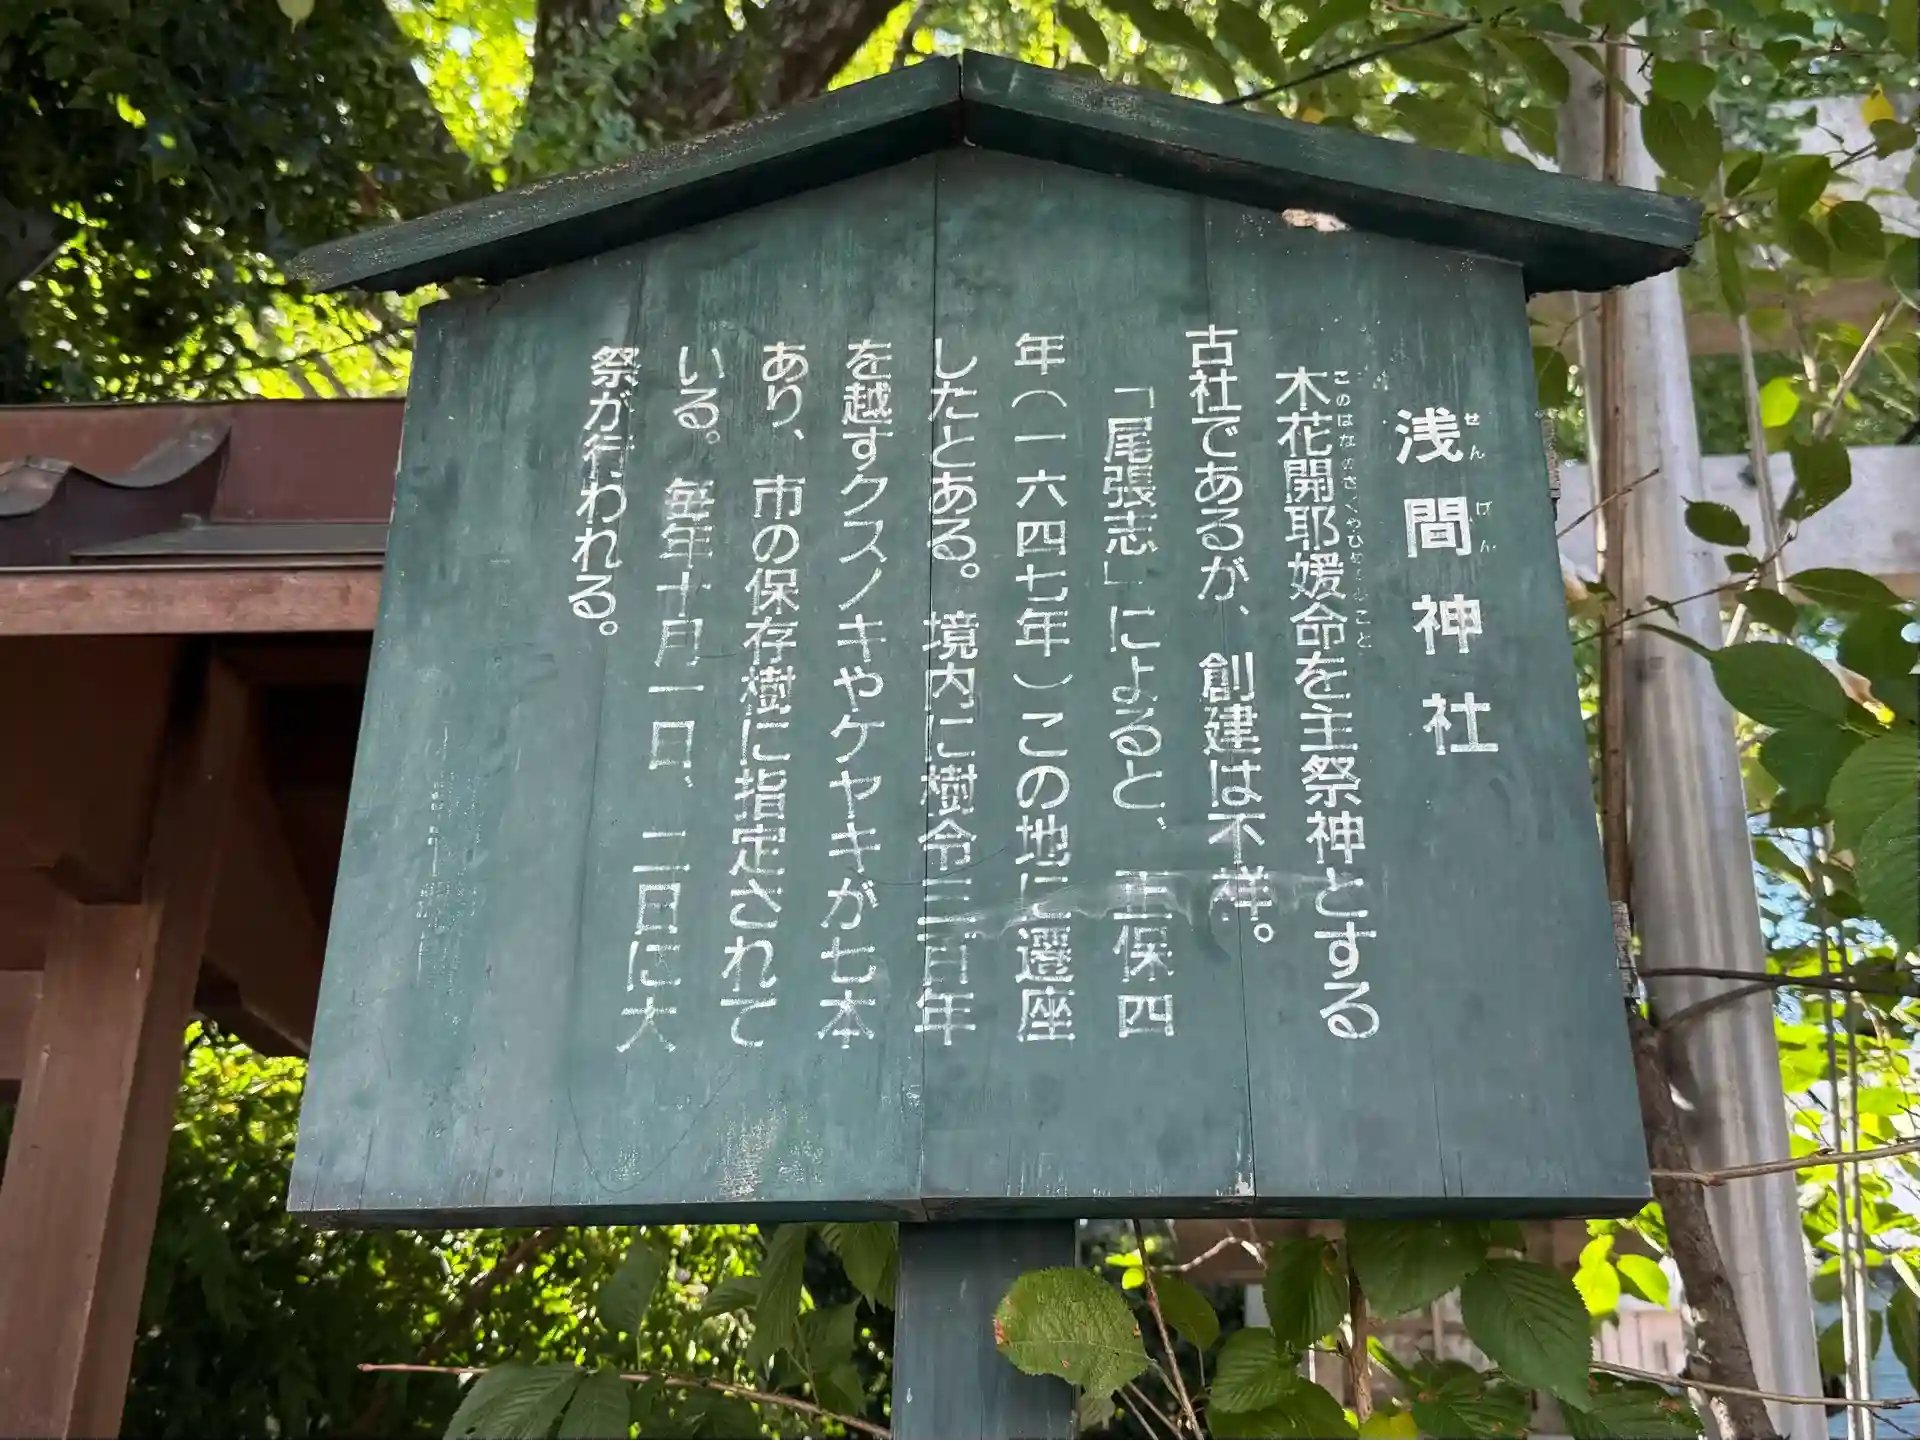 浅間神社
せんげん
木花開耶媛命を主祭神とする
このはなのさくやひめのみこと
古社であるが、創建は不祥。
「尾張志」によると、正保四
年(一六四七年)この地に遷座
したとある。境内に樹令三百年
を越すクスノキやケヤキが七本
あり、市の保存樹に指定されて
いる。毎年十月一日、二日に大
祭が行われる。